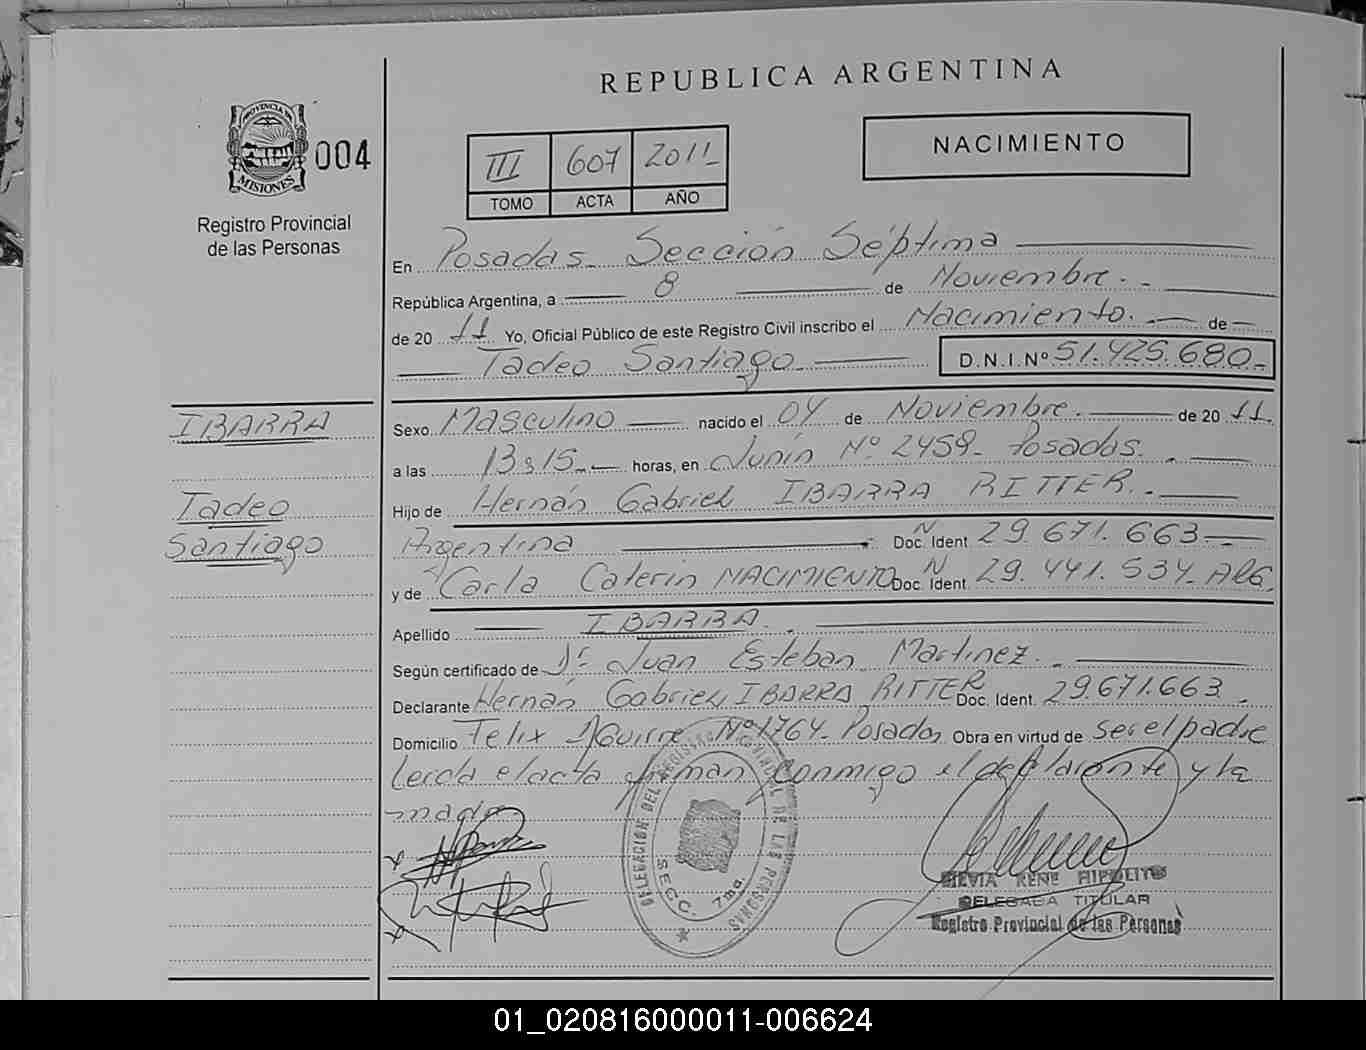 REPUBLICA ARGENTINA
PROVINCIA DE
MISIONES
004
Registro Provincial
de las Personas
III 607 2011
TOMO ACTA AÑO
NACIMIENTO
En Posadas Sección Séptima
República Argentina, a 8 de Noviembre.
de 20 11 Yo, Oficial Público de este Registro Civil inscribo el Nacimiento. de
Tadeo Santiago D.N.I. Nº 51.425.680.-
IBARRA
Tadeo
Santiago
Sexo Masculino nacido el 04 de Noviembre. de 20 11.
a las 13:15 horas, en Junín Nº 2459 Posadas.
Hijo de Hernán Gabriel IBARRA RITTER.
Argentina Doc. Ident. N 29.671.663
y de Carla Caterin NACIMIENTO Doc. Ident. N 29.441.534. ARG.
Apellido IBARRA.
Según certificado de Dr. Juan Esteban Martinez.
Declarante Hernán Gabriel IBARRA RITTER Doc. Ident. 29.671.663.
Domicilio Felix Aguirre Nº 1764 Posadas Obra en virtud de ser el padre
Leida el acta firman conmigo el declarante y la
madre
DELEGACION DEL REGISTRO PROVINCIAL DE LAS PERSONAS
SECC. 7ma.
SILVIA RENE HIPOLITO
DELEGADA TITULAR
Registro Provincial de las Personas
01_020816000011-006624